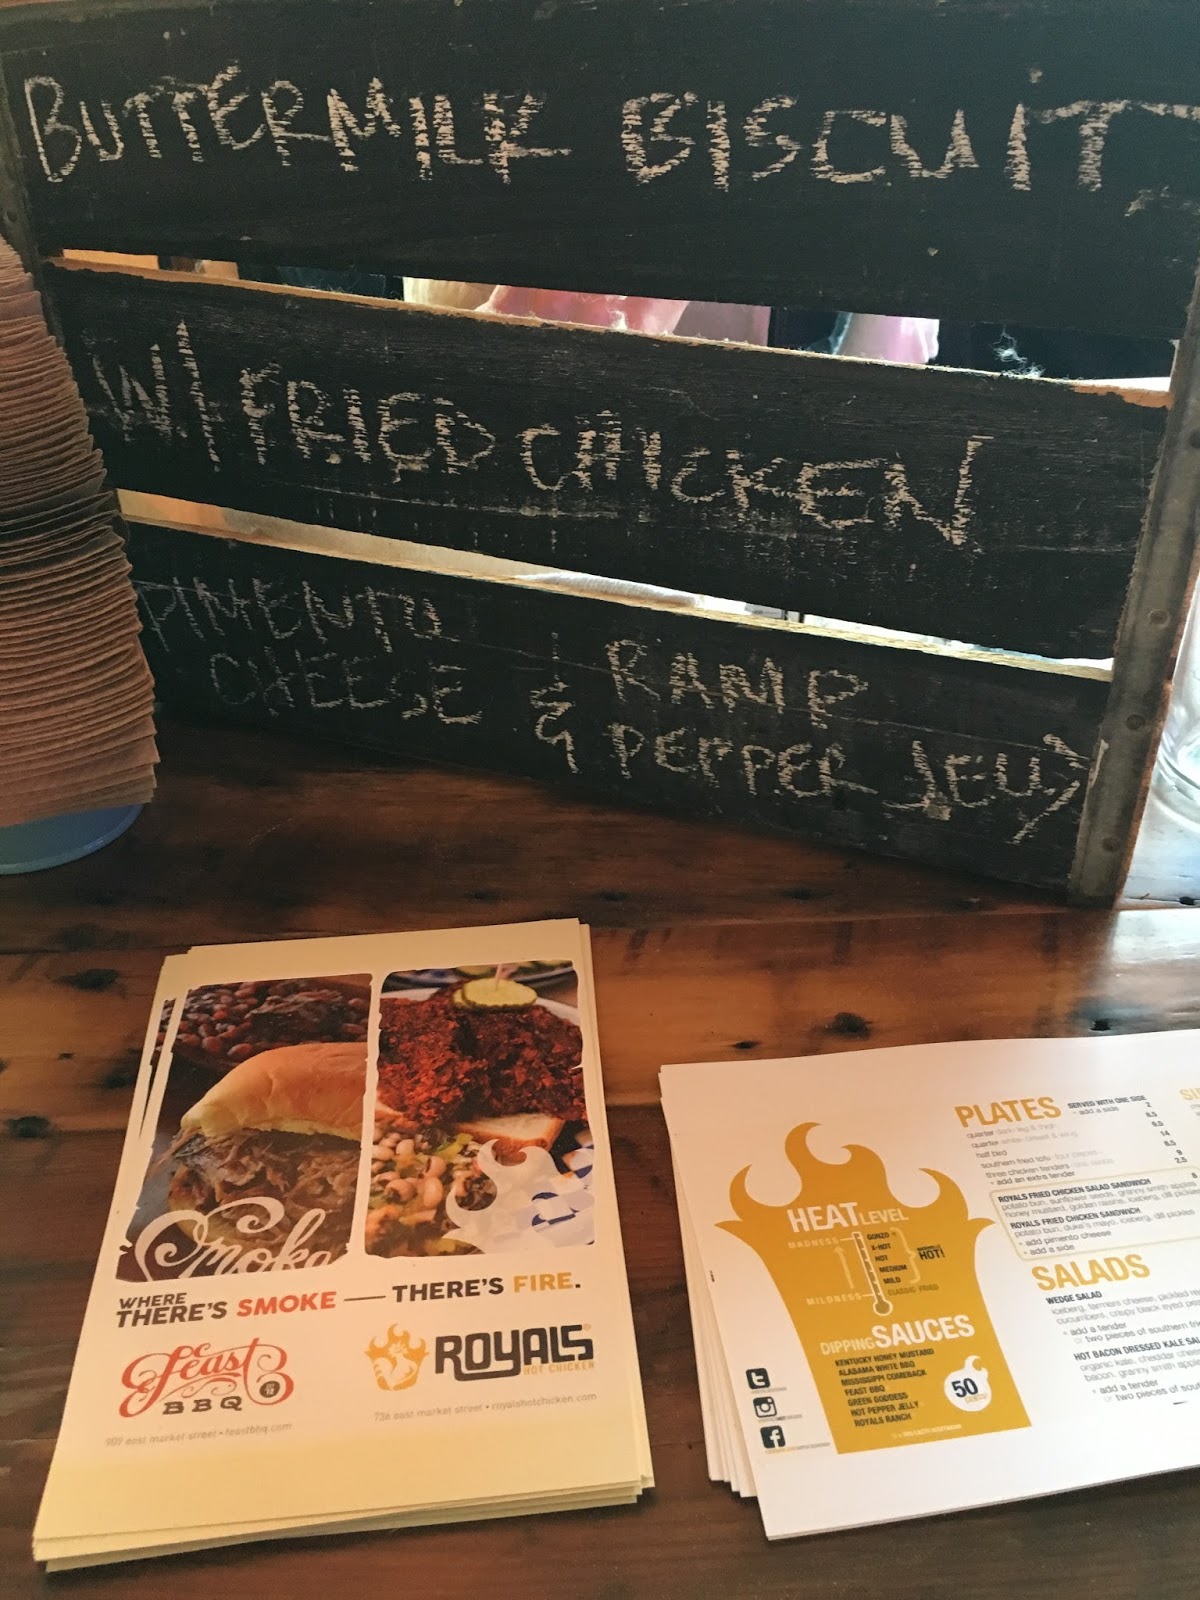 BUTTERMILK BISCUIT
W/ FRIED CHICKEN
PIMENTO
CHEESE & RAMP
PEPPER JELLY
Smoke
WHERE
THERE'S SMOKE — THERE'S FIRE.
Feast
BBQ
909 east market street • feastbbq.com
ROYALS
HOT CHICKEN
736 east market street • royalshotchicken.com
HEAT LEVEL
MADNESS
MILDNESS
GONZO
X-HOT
HOT
MEDIUM
MILD
CLASSIC FRIED
HOT!
DIPPING SAUCES
KENTUCKY HONEY MUSTARD
ALABAMA WHITE BBQ
MISSISSIPPI COMEBACK
FEAST BBQ
GREEN GODDESS
HOT PEPPER JELLY
ROYALS RANCH
50
PLATES SERVED WITH ONE SIDE
+ add a side 2
quarter dark: leg & thigh 8.5
quarter white: breast & wing 9.5
half bird 14
southern fried tofu 8.5
three chicken tenders 9
+ add an extra tender 2.5
ROYALS FRIED CHICKEN SALAD SANDWICH 8
potato bun, sunflower seeds, granny smith apples
honey mustard, golden raisins, iceberg, dill pickle
ROYALS FRIED CHICKEN SANDWICH
potato bun, duke's mayo, iceberg, dill pickles
+ add pimento cheese
+ add a side
SALADS
WEDGE SALAD
iceberg, farmers cheese, pickled
cucumbers, crispy black eyed
+ add a tender
or two pieces of southern
HOT BACON DRESSED KALE
organic kale, cheddar
bacon, granny smith
+ add a tender
or two pieces of